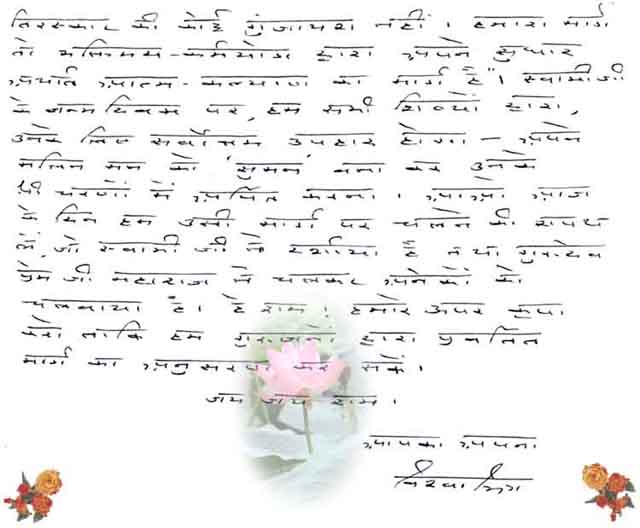 तिरस्कार की कोई गुंजायश नहीं । हमारा मार्ग
तो भक्तिमय-कर्मयोग द्वारा अपने सुधार
अर्थात आत्म-कल्याण का मार्ग है" । स्वामीजी
के जन्म दिवस पर, हम सभी शिष्यों द्वारा,
उनके लिए सर्वोत्तम उपहार होगा — अपने
मलिन मन को 'सुमन' बना कर उनके
श्री चरणों में अर्पित करना । आओ, आज
के दिन हम उसी मार्ग पर चलने की शपथ
लें, जो स्वामी जी ने दर्शाया है तथा गुरुदेव
प्रेम जी महाराज ने चलकर अनेकों को
चलवाया है । हे राम ! हमारे ऊपर कृपा
करो ताकि हम गुरुजनों द्वारा प्रवर्तित
मार्ग का अनुसरण कर सकें ।
जय जय राम ।
आपका अपना